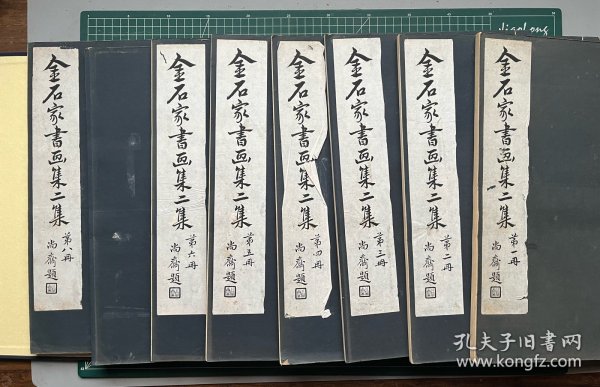 金石家書画集二集
第一冊
尚齋題
金石家書画集二集
第二冊
尚齋題
金石家書画集二集
第三冊
尚齋題
金石家書画集二集
第四冊
尚齋題
金石家書画集二集
第五冊
尚齋題
金石家書画集二集
第六冊
尚齋題
金石家書画集二集
第八冊
尚齋題
JiaoLong
孔夫子旧書网
www.kongfz.com